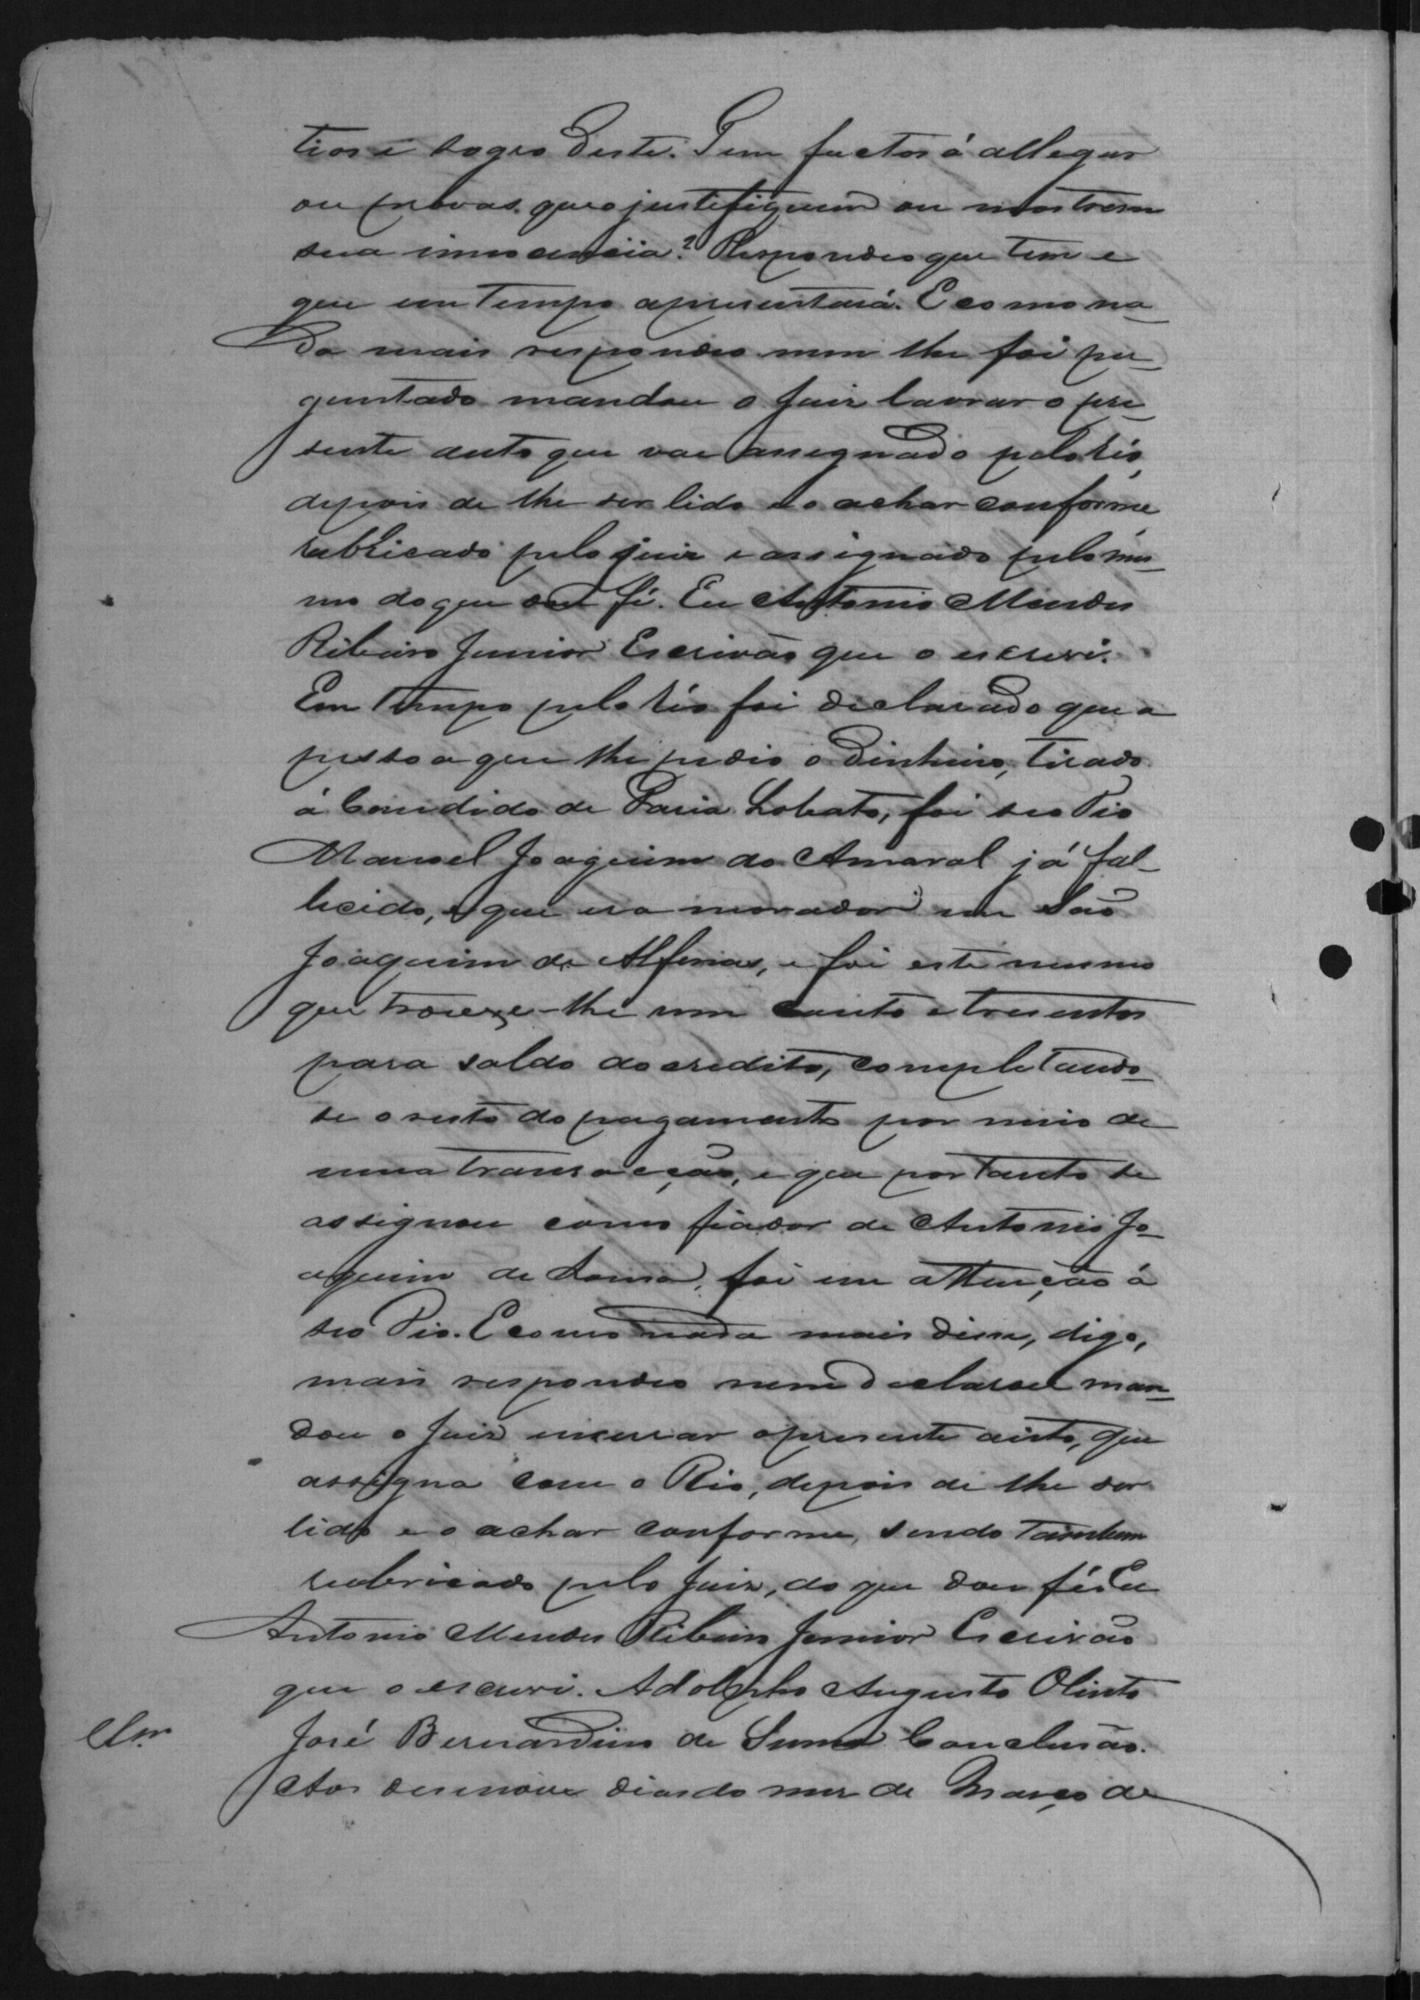 tios e sogro deste. Tem factos á allegar
ou provas que o justifiquem ou mostrem
sua innocencia? Respondeo que tem e
que em tempo apresentará. E como na-
da mais respondeo nem lhe foi per-
guntado mandou o Juiz lavrar o pre-
sente auto que vae assegnado pelo réo,
depois de lhe ser lido e o achar conforme,
rubricado pelo juiz e assignado pelo mes-
mo do que dou fé. Eu Antonio Mendes
Ribeiro Junior Escrivão que o escrevi.
Em tempo pelo réo foi declarado que a
pessoa que lhe pedio o dinheiro, tirado
á Candido de Faria Lobato, foi seo Tio
Manoel Joaquim do Amaral já fal-
lecido, e que era morador em São
Joaquim de Alfenas, e foi este mesmo
que trouxe-lhe um conto e tresentos
para saldo do credito, completando-
se o resto do pagamento por meio de
uma transacção, e que portanto se
assignou como fiador de Antonio Jo-
aquim de Lima, foi em attenção á
seo Tio. E como nada mais disse, digo,
mais respondeo nem declarou man-
dou o Juiz encerrar o presente auto, que
assigna com o Réo, depois de lhe ser
lido e o achar conforme, sendo tambem
rubricado pelo Juiz, do que dou fé. Eu
Antonio Mendes Ribeiro Junior Escrivão
que o escrevi. Adolpho Augusto Olinto
José Bernardino de Sousa Conclusão.
Aos desenove dias do mez de Março de